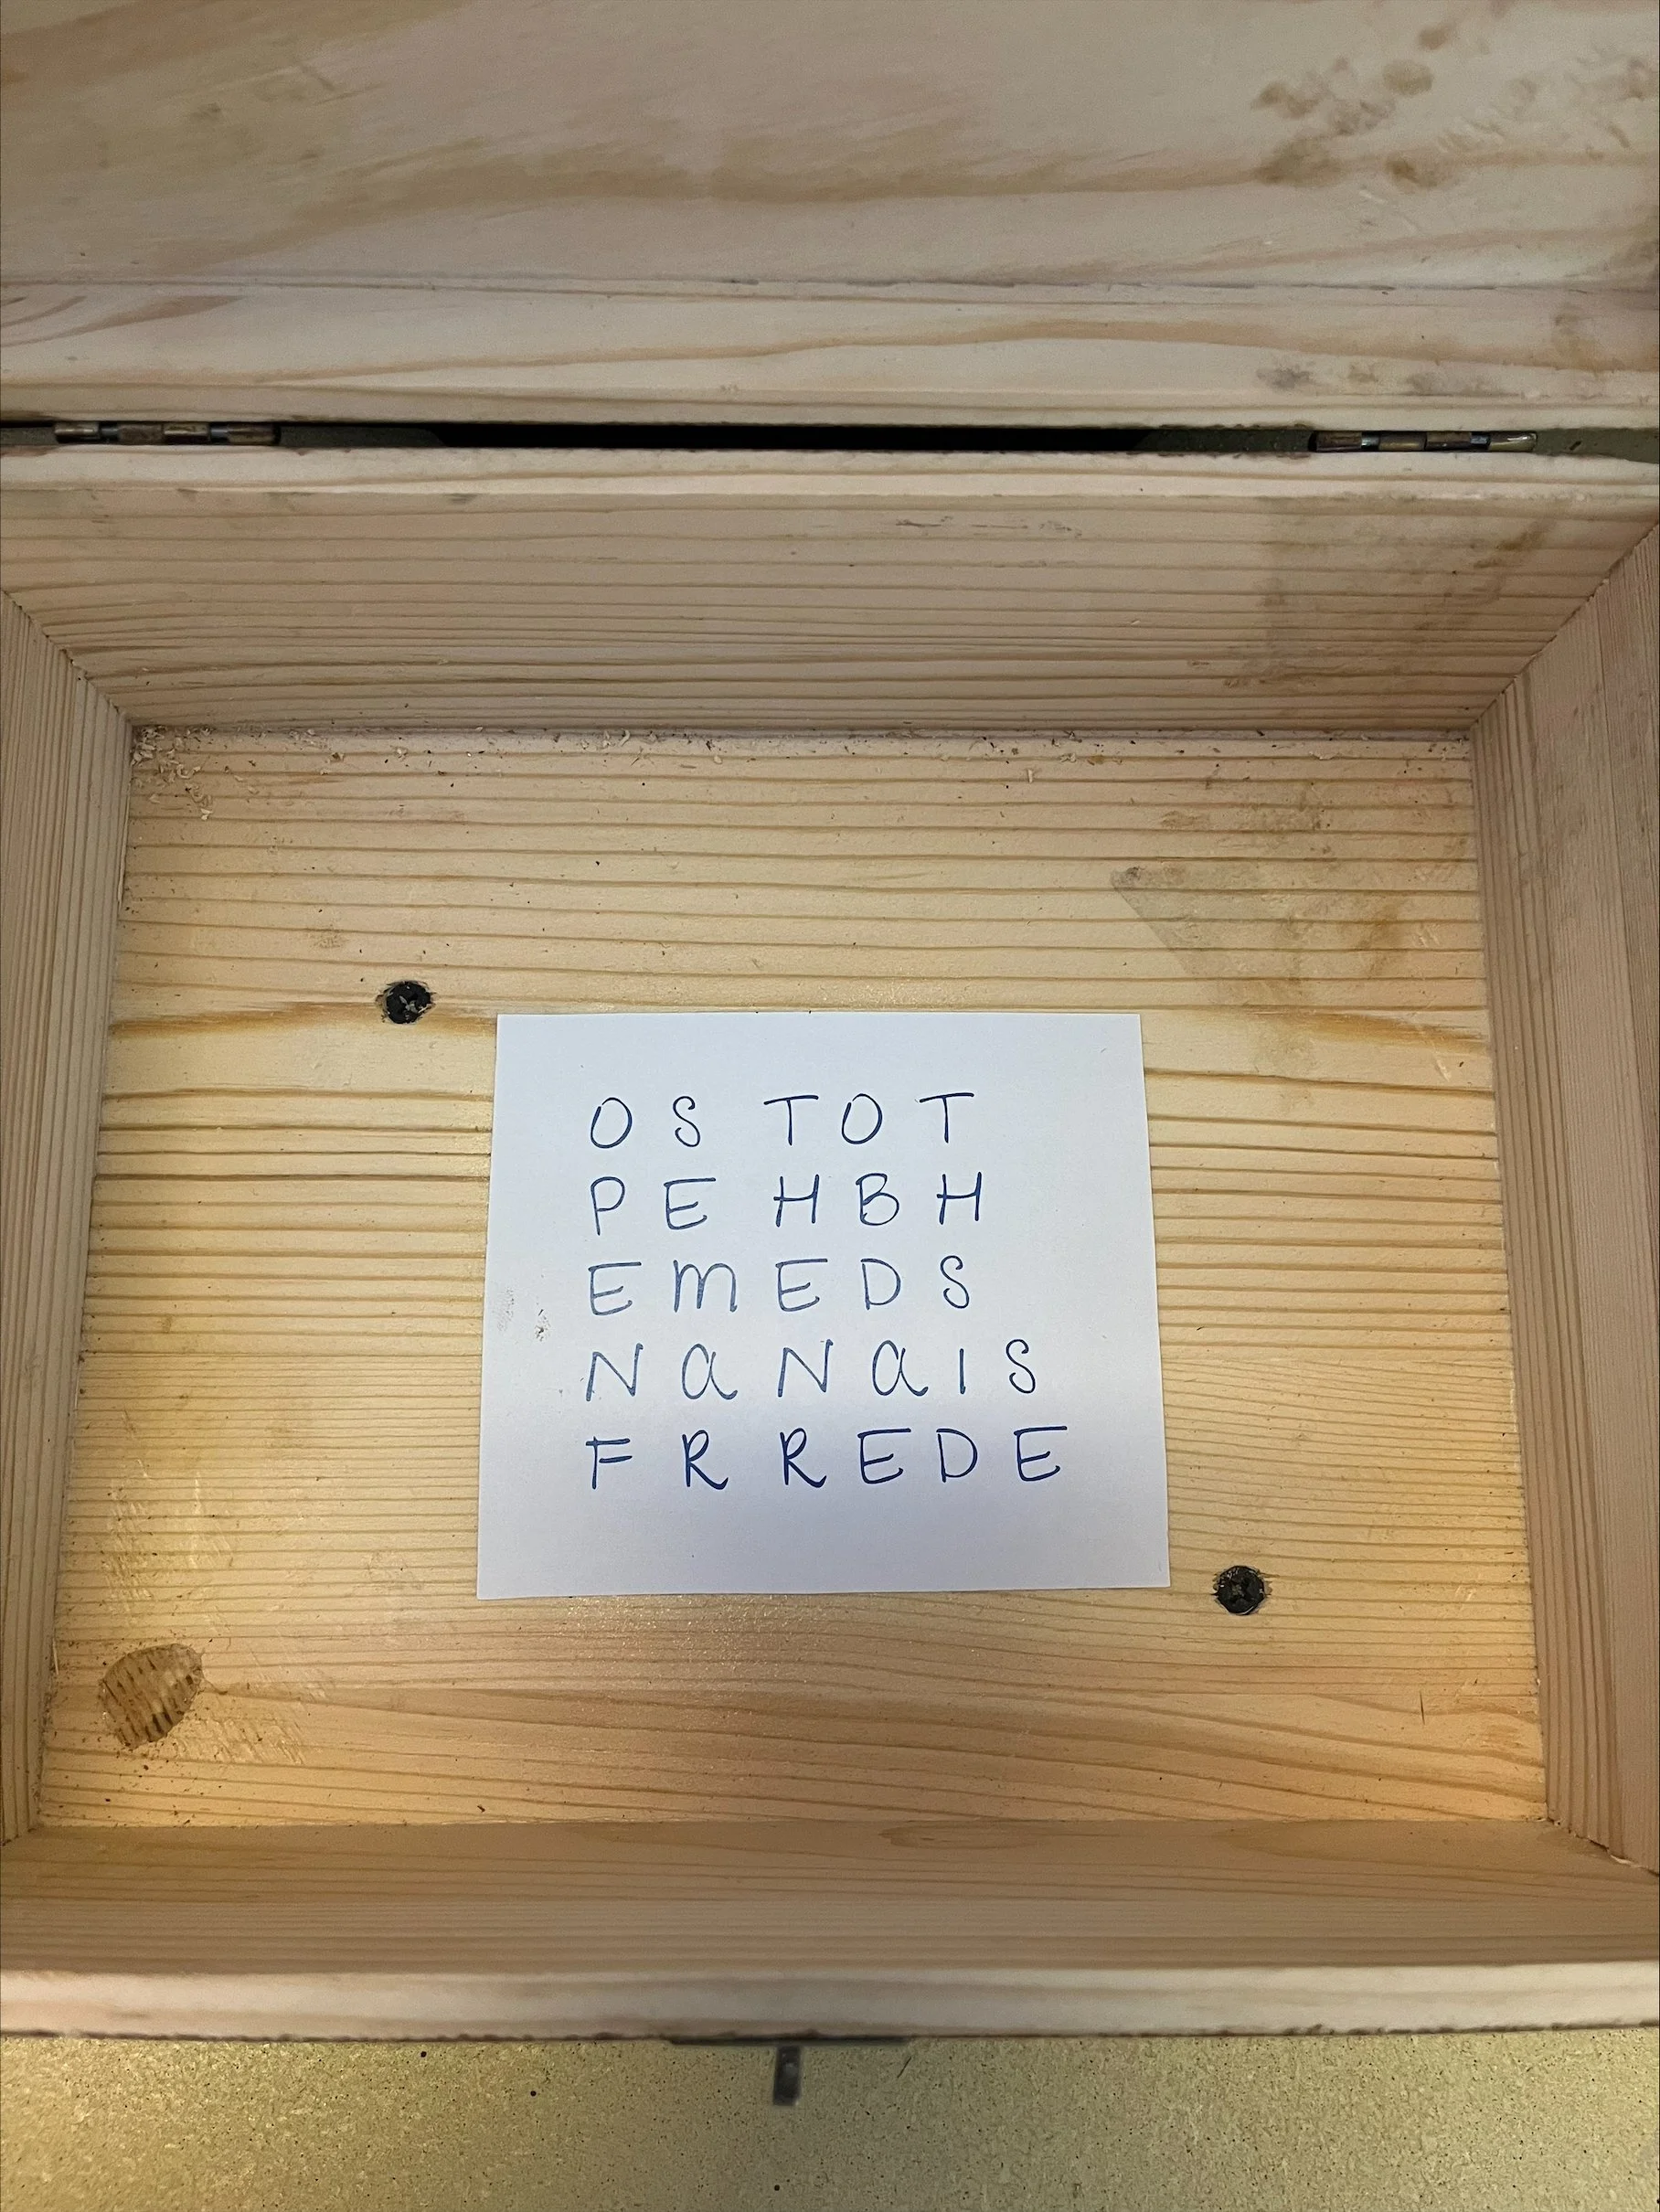 O S T O T
P E H B H
E M E D S
N A N A I S
F R R E D E